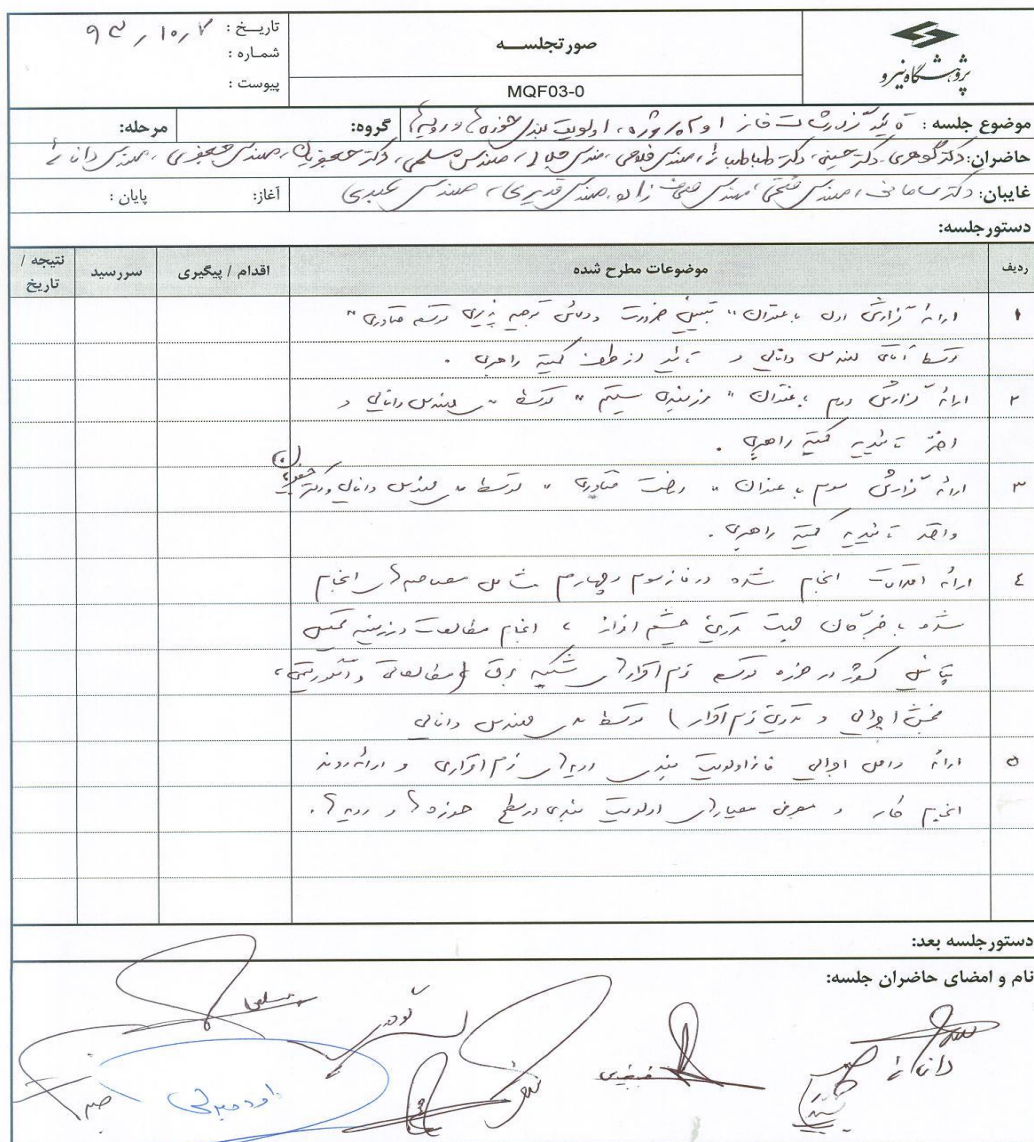 تاریـخ : ۹۳/۱۰/۷
شماره :
پیوست :
صورتجلســه
MQF03-0
پژوهشگاه نیرو
موضوع جلسه : تائید گزارشات فاز اول پروژه، اولویت بندی حوزه ها و رویه ها
گروه:
مرحله:
حاضران: دکتر گوهری، دکتر حسینی، دکتر طباطبائی، مهندس فلاحی، مهندس جلالی، مهندس مسلمی، دکتر جعفریان، مهندس جعفری، مهندس دانائی
غایبان: دکتر سامانی، مهندس فتحی، مهندس زاده، مهندس قدیری، مهندس عبیری
آغاز:
پایان :
دستورجلسه:
ردیف
موضوعات مطرح شده
اقدام / پیگیری
سررسید
نتیجه / تاریخ
۱ ارائه گزارش اول با عنوان " تبیین ضرورت و توجیه پذیری توسعه فناوری "
توسط آقای مهندس دانایی و تائید از طرف کمیته راهبری .
۲ ارائه گزارش دوم با عنوان " مرزبندی سیستم " توسط مهندس دانایی و
اخذ تائیدیه کمیته راهبری .
۳ ارائه گزارش سوم با عنوان " فناوری " توسط مهندس دانایی و دکتر جعفریان
و اخذ تائیدیه کمیته راهبری .
۴ ارائه اقدامات انجام شده در فاز سوم و چهارم شامل مصاحبه های انجام
شده با خبرگان جهت تدوین چشم انداز ، انجام مطالعات در زمینه
پتانسیل کشور در حوزه توسعه نرم افزارهای شبکه برق (مطالعاتی و ،
بخش اجرایی و تدوین نرم افزار) توسط مهندس دانایی
۵ ارائه مراحل اجرایی فاز اولویت بندی رویه های نرم افزاری و ارائه روند
انجام کار و معرفی معیارهای اولویت بندی در سطح حوزه ها و رویه ها.
دستورجلسه بعد:
نام و امضای حاضران جلسه:
مسلمی
گوهری
دانائی